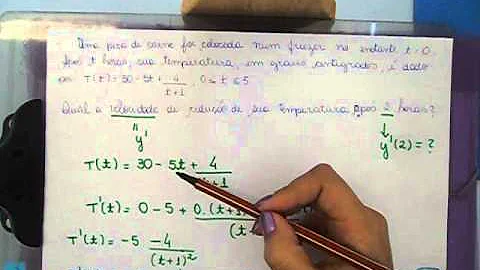 Uma peça de carne foi colocada num freezer no instante t=0.
Após t horas, sua temperatura, em graus centígrados, é dada
por T(t) = 30 - 5t + 4/(t+1), 0 ≤ t ≤ 5
Qual a velocidade de redução de sua temperatura após 2 horas?
" ↓
y' y'(2) = ?
T(t) = 30 - 5t + 4/(t+1)
T'(t) = 0 - 5 + 0.(t+1)
(t
T'(t) = -5 -4/(t+1)²